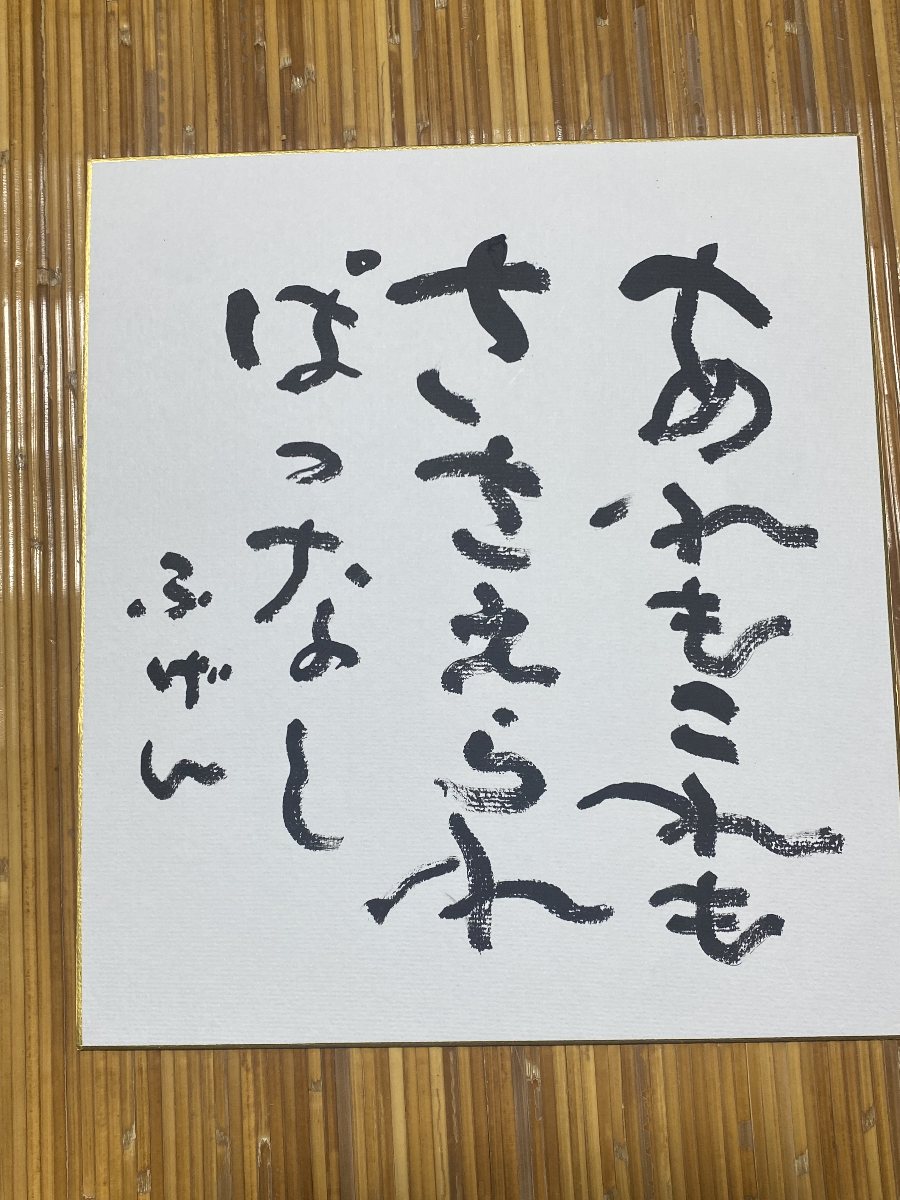 あれもこれも
ささえられ
ぱっなし
ふげん